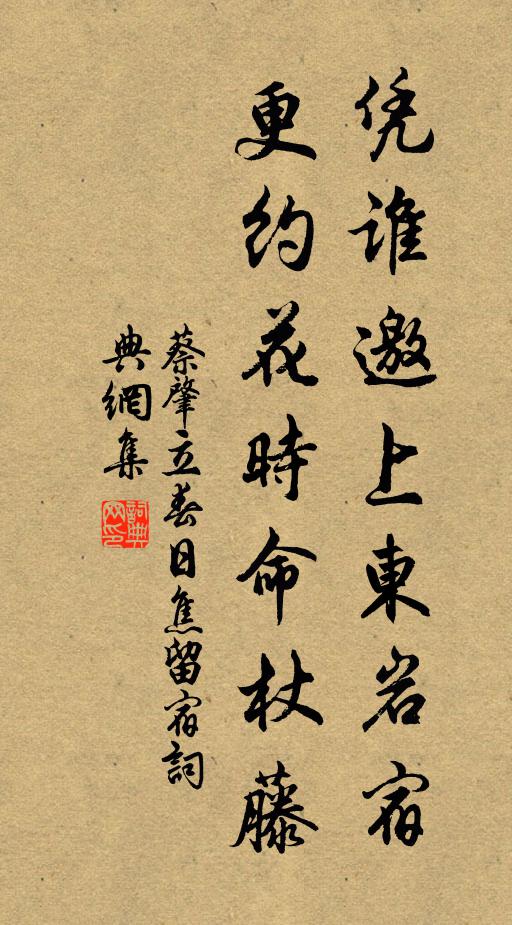 凭誰邀上東岩宿
更約花時命杖藤
蔡肇立春日焦留宿詞
典網集
詞典
网印